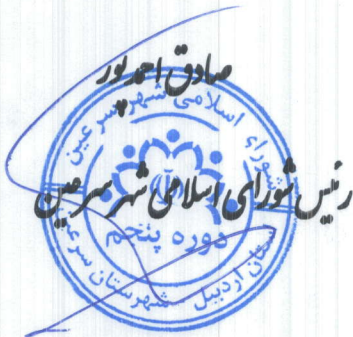 صادق احمدپور
رئیس شورای اسلامی شهر سرعین
شورای اسلامی شهر سرعین
دوره پنجم
استان اردبیل شهرستان سرعین